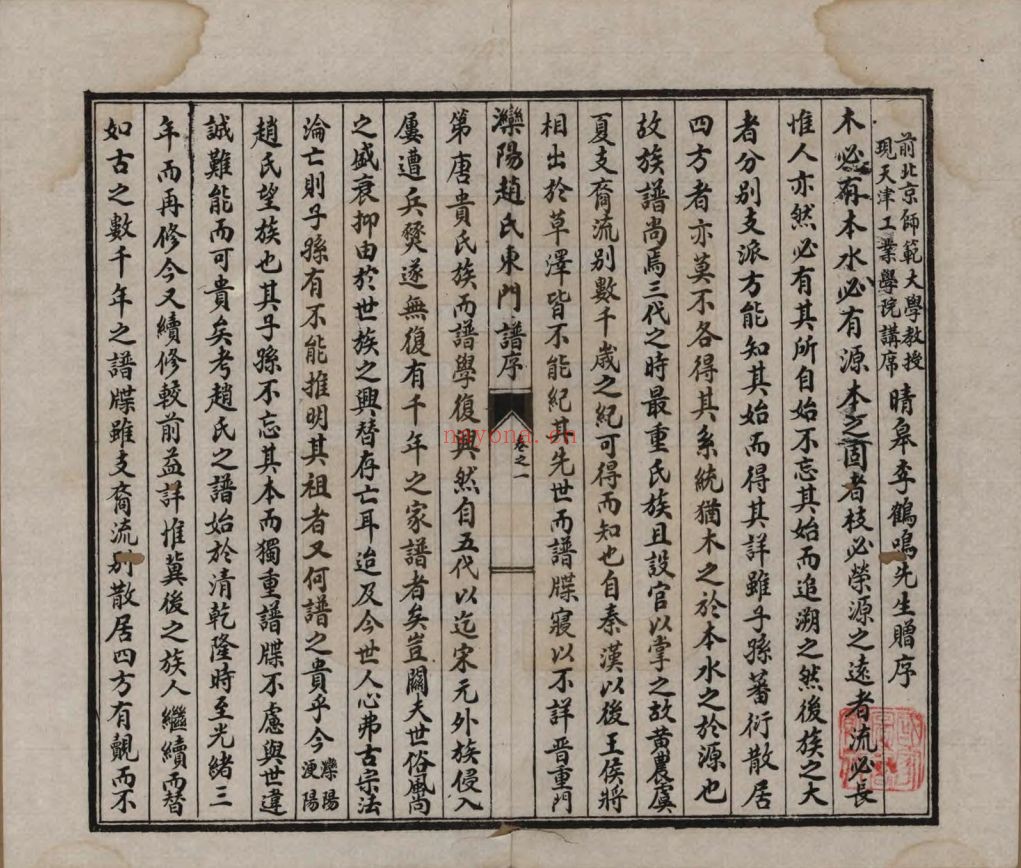 前北京師範大學教授
現天津工業學院講席
晴皋李鶴鳴先生贈序
木必有本水必有源本之固者枝必榮源之遠者流必長
惟人亦然必有其所自始不忘其始而追溯之然後族之大
者分別支派方能知其始而得其詳雖子孫蕃衍散居
四方者亦莫不各得其系統猶木之於本水之於源也
故族譜尚焉三代之時最重氏族且設官以掌之故黃農虞
夏支裔流別數千歲之紀可得而知也自秦漢以後王侯將
相出於草澤皆不能紀其先世而譜牒寖以不詳晉重門
灤陽趙氏東門譜序
卷之一
第唐貴氏族而譜學復興然自五代以迄宋元外族侵入
屢遭兵燹遂無復有千年之家譜者矣豈關夫世俗風尚
之盛衰抑由於世族之興替存亡耳迨及今世人心弗古宗法
淪亡則子孫有不能推明其祖者又何譜之貴乎今灤陽
浭陽
趙氏望族也其子孫不忘其本而獨重譜牒不慮與世違
誠難能而可貴矣考趙氏之譜始於清乾隆時至光緒三
年而再修今又續修較前益詳惟冀後之族人繼續而替
如古之數千年之譜牒雖支裔流別散居四方有觀而不
nayona.cn